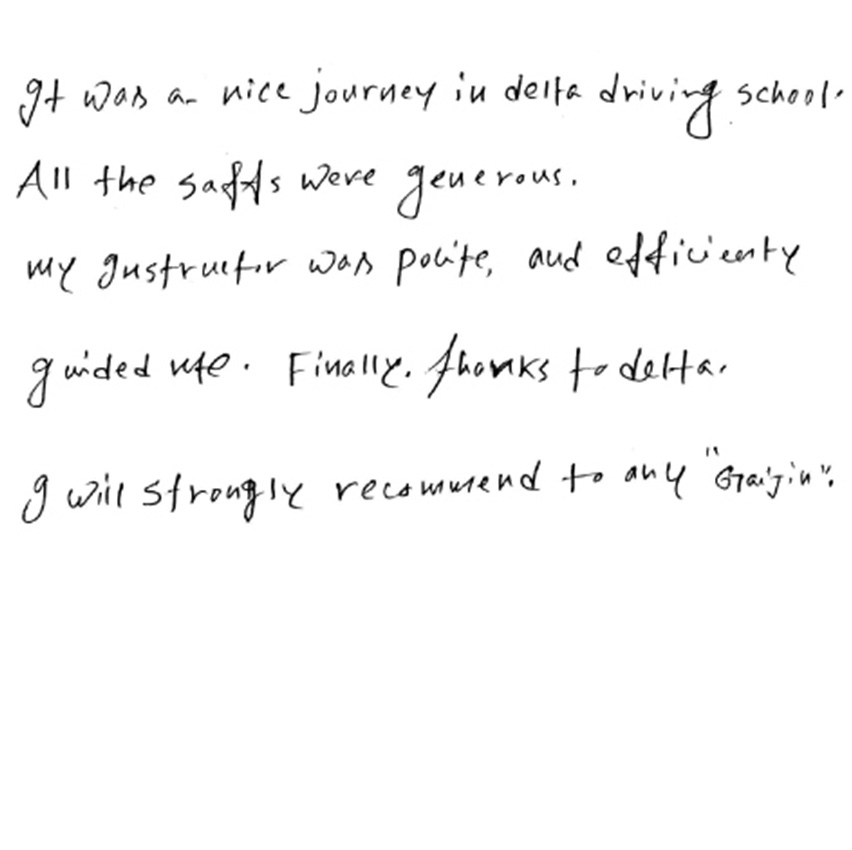 It was a nice journey in delta driving school.
All the saffs were generous.
my Instructor was polite, and efficienty
guided me. Finally. thanks to delta.
I will strongly recommend to any "Gaijin".